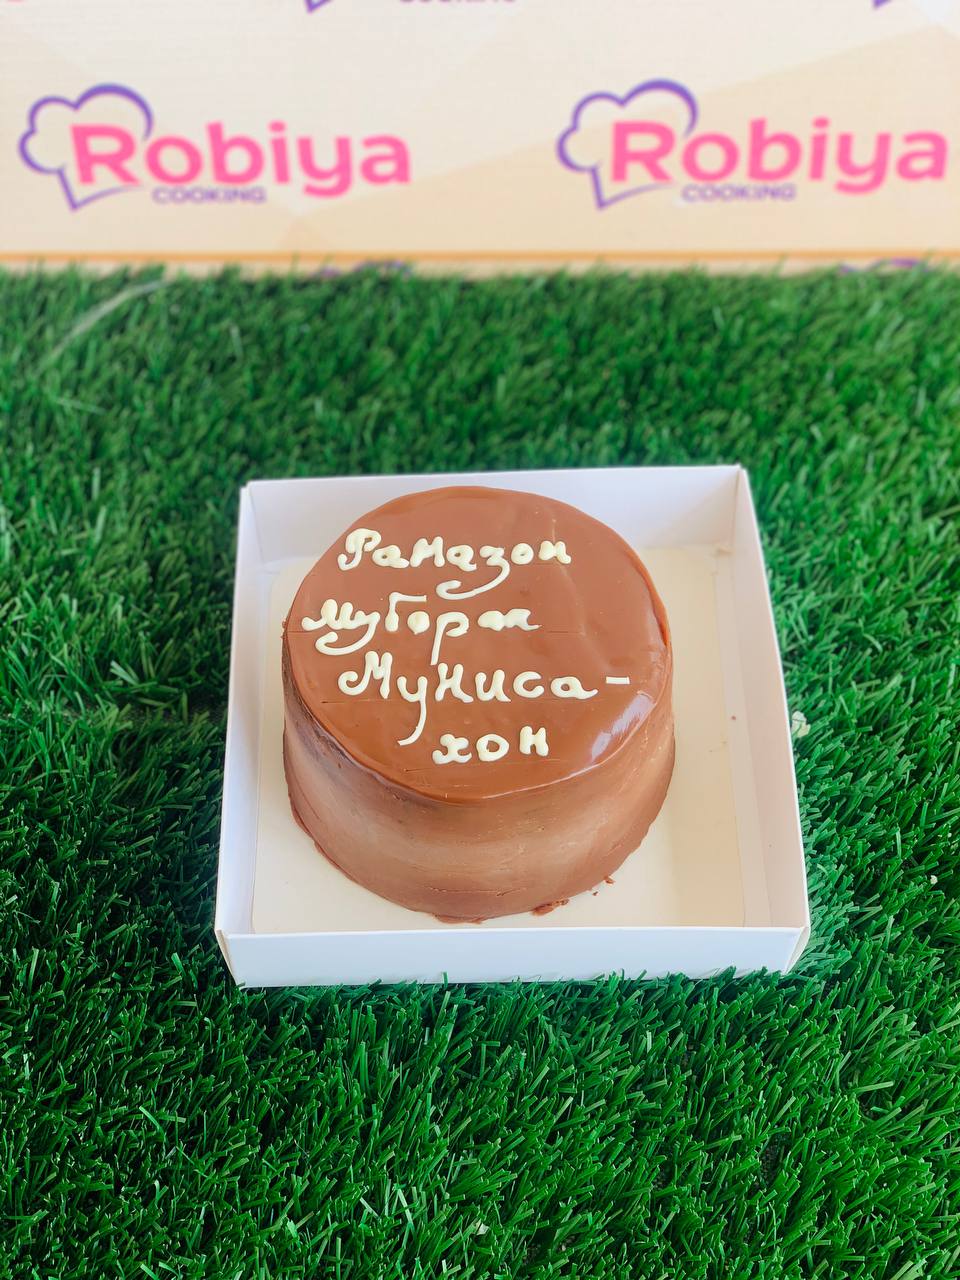 Robiya
COOKING
Robiya
COOKING
Рамазон
муборак
Муниса-
хон